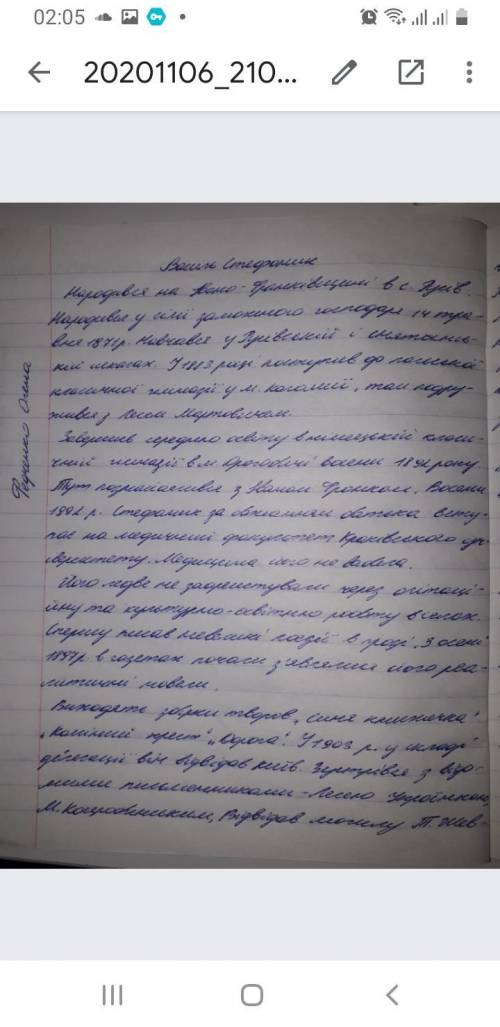 02:05
20201106_210...
Василь Стефаник
Народився на Івано-Франківщині в с. Русів.
Народився у сім'ї заможного господаря 14 тра-
вня 1871р. Навчався у Русівській і Снятинсь-
кій школах. У 1883 році поступив до польської
класичної гімназії у м. Коломиї, там подру-
жився з Лесем Мартовичем.
Завершив середню освіту в німецькій класи-
чній гімназії в м. Дрогобичі восени 1892 року.
Тут познайомився з Іваном Франком. Восени
1892 р. Стефаник за бажанням батька всту-
пає на медичний факультет Краківського уні-
верситету. Медицина його не вабила.
Його ледве не заарештували через агітаці-
йну та культурно-освітню роботу в селах.
Спершу писав невеликі поезії в прозі. З осені
1897р. в газетах почали з'являтися його реа-
лістичні новели.
Виходять збірки творів „Синя книжечка"
„Камінний хрест" „Дорога". У 1903 р. у складі
делегації він відвідав Київ. Зустрівся з відо-
мими письменниками - Лесею Українкою,
М. Коцюбинським, Відвідав могилу Т. Шев-
Федишин Олена